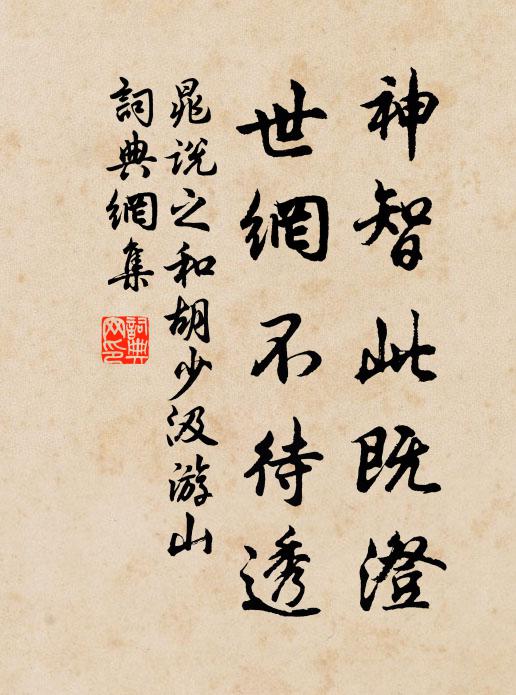 神智此既澄
世網不待透
晁說之和胡少汲游山
詞典網集
詞典網印